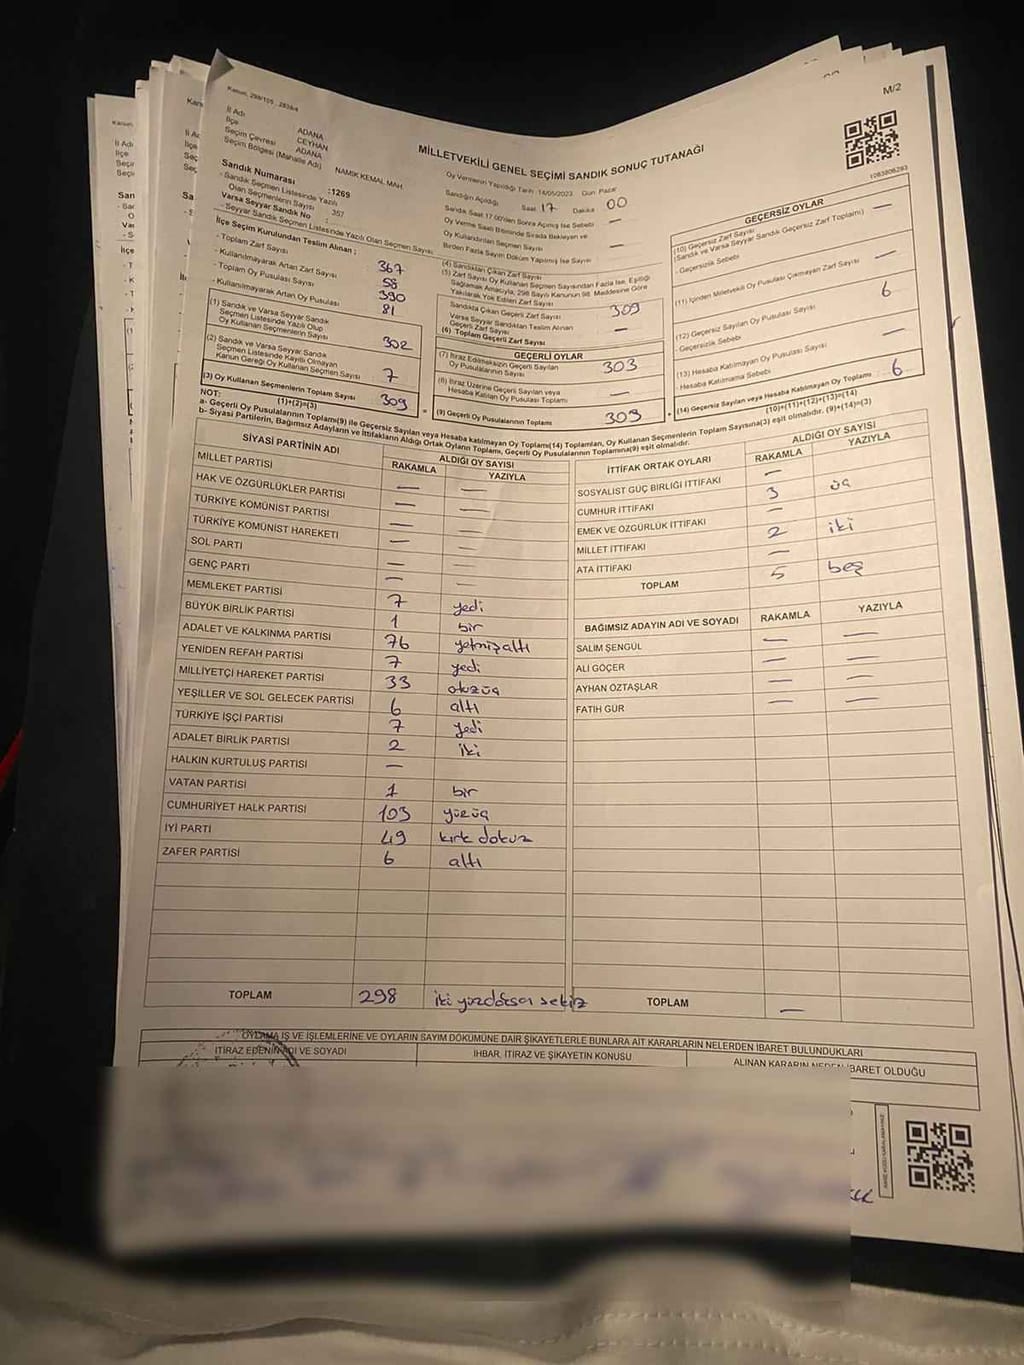 Kanun: 298/105, 2839/4
M/2
İl Adı ADANA
İlçe CEYHAN
Seçim Çevresi ADANA
Seçim Bölgesi (Mahalle Adı) NAMIK KEMAL MAH.
MİLLETVEKİLİ GENEL SEÇİMİ SANDIK SONUÇ TUTANAĞI
Sandık Numarası :1269
- Sandık Seçmen Listesinde Yazılı
Olan Seçmenlerin Sayısı 357
Varsa Seyyar Sandık No :
- Seyyar Sandık Seçmen Listesinde Yazılı Olan Seçmen Sayısı
Oy Vermenin Yapıldığı Tarih :14/05/2023 Gün: Pazar
Sandığın Açıldığı Saat 17 Dakika 00
Sandık Saat 17.00'den Sonra Açılmış İse Sebebi —
Oy Verme Saati Bitiminde Sırada Bekleyen ve
Oy Kullandırılan Seçmen Sayısı —
Birden Fazla Sayım Döküm Yapılmış İse Sayısı
İlçe Seçim Kurulundan Teslim Alınan ;
- Toplam Zarf Sayısı 367
- Kullanılmayarak Artan Zarf Sayısı 58
- Toplam Oy Pusulası Sayısı 390
- Kullanılmayarak Artan Oy Pusulası 81
(1) Sandık ve Varsa Seyyar Sandık
Seçmen Listesinde Yazılı Olup
Oy Kullanan Seçmenlerin Sayısı 302
(2) Sandık ve Varsa Seyyar Sandık
Seçmen Listesinde Kayıtlı Olmayan
Kanun Gereği Oy Kullanan Seçmen Sayısı 7
(3) Oy Kullanan Seçmenlerin Toplam Sayısı 309
(1)+(2)=(3)
(4) Sandıktan Çıkan Zarf Sayısı
(5) Zarf Sayısı Oy Kullanan Seçmen Sayısından Fazla İse, Eşitliği
Sağlamak Amacıyla, 298 Sayılı Kanunun 98. Maddesine Göre
Yakılarak Yok Edilen Zarf Sayısı
Sandıkta Çıkan Geçerli Zarf Sayısı 309
Varsa Seyyar Sandıktan Teslim Alınan
Geçerli Zarf Sayısı —
(6) Toplam Geçerli Zarf Sayısı
GEÇERLİ OYLAR
(7) İtiraz Edilmeksizin Geçerli Sayılan
Oy Pusulalarının Sayısı 303
(8) İtiraz Üzerine Geçerli Sayılan veya
Hesaba Katılan Oy Pusulası Toplamı —
(9) Geçerli Oy Pusulalarının Toplamı 303
1083806293
GEÇERSİZ OYLAR
(10) Geçersiz Zarf Sayısı
(Sandık ve Varsa Seyyar Sandık Geçersiz Zarf Toplamı) —
- Geçersizlik Sebebi
(11) İçinden Milletvekili Oy Pusulası Çıkmayan Zarf Sayısı —
(12) Geçersiz Sayılan Oy Pusulası Sayısı 6
- Geçersizlik Sebebi
(13) Hesaba Katılmayan Oy Pusulası Sayısı —
- Hesaba Katılmama Sebebi
(14) Geçersiz Sayılan veya Hesaba Katılmayan Oy Toplamı 6
(10)+(11)+(12)+(13)=(14)
NOT:
a- Geçerli Oy Pusulalarının Toplamı(9) ile Geçersiz Sayılan veya Hesaba katılmayan Oy Toplamı(14) Toplamları, Oy Kullanan Seçmenlerin Toplam Sayısına(3) eşit olmalıdır. (9)+(14)=(3)
b- Siyasi Partilerin, Bağımsız Adayların ve İttifakların Aldığı Ortak Oyların Toplamı, Geçerli Oy Pusulalarının Toplamına(9) eşit olmalıdır.
SİYASİ PARTİNİN ADI ALDIĞI OY SAYISI
RAKAMLA YAZIYLA
MİLLET PARTİSİ — —
HAK VE ÖZGÜRLÜKLER PARTİSİ — —
TÜRKİYE KOMÜNİST PARTİSİ — —
TÜRKİYE KOMÜNİST HAREKETİ — —
SOL PARTİ — —
GENÇ PARTİ — —
MEMLEKET PARTİSİ 7 yedi
BÜYÜK BİRLİK PARTİSİ 1 bir
ADALET VE KALKINMA PARTİSİ 76 yetmişaltı
YENİDEN REFAH PARTİSİ 7 yedi
MİLLİYETÇİ HAREKET PARTİSİ 33 otuzüç
YEŞİLLER VE SOL GELECEK PARTİSİ 6 altı
TÜRKİYE İŞÇİ PARTİSİ 7 yedi
ADALET BİRLİK PARTİSİ 2 iki
HALKIN KURTULUŞ PARTİSİ —
VATAN PARTİSİ 1 bir
CUMHURİYET HALK PARTİSİ 103 yüzüç
İYİ PARTİ 49 kırk dokuz
ZAFER PARTİSİ 6 altı
TOPLAM 298 iki yüzdoksan sekiz
İTTİFAK ORTAK OYLARI ALDIĞI OY SAYISI
RAKAMLA YAZIYLA
SOSYALİST GÜÇ BİRLİĞİ İTTİFAKI —
CUMHUR İTTİFAKI 3 üç
EMEK VE ÖZGÜRLÜK İTTİFAKI —
MİLLET İTTİFAKI 2 iki
ATA İTTİFAKI —
TOPLAM 5 beş
BAĞIMSIZ ADAYIN ADI VE SOYADI RAKAMLA YAZIYLA
SALİM ŞENGÜL — —
ALİ GÖÇER — —
AYHAN ÖZTAŞLAR — —
FATİH GÜR — —
TOPLAM —
OYLAMA İŞ VE İŞLEMLERİNE VE OYLARIN SAYIM DÖKÜMÜNE DAİR ŞİKAYETLERLE BUNLARA AİT KARARLARIN NELERDEN İBARET BULUNDUKLARI
İTİRAZ EDENİN ADI VE SOYADI İHBAR, İTİRAZ VE ŞİKAYETİN KONUSU ALINAN KARARIN NEDEN İBARET OLDUĞU